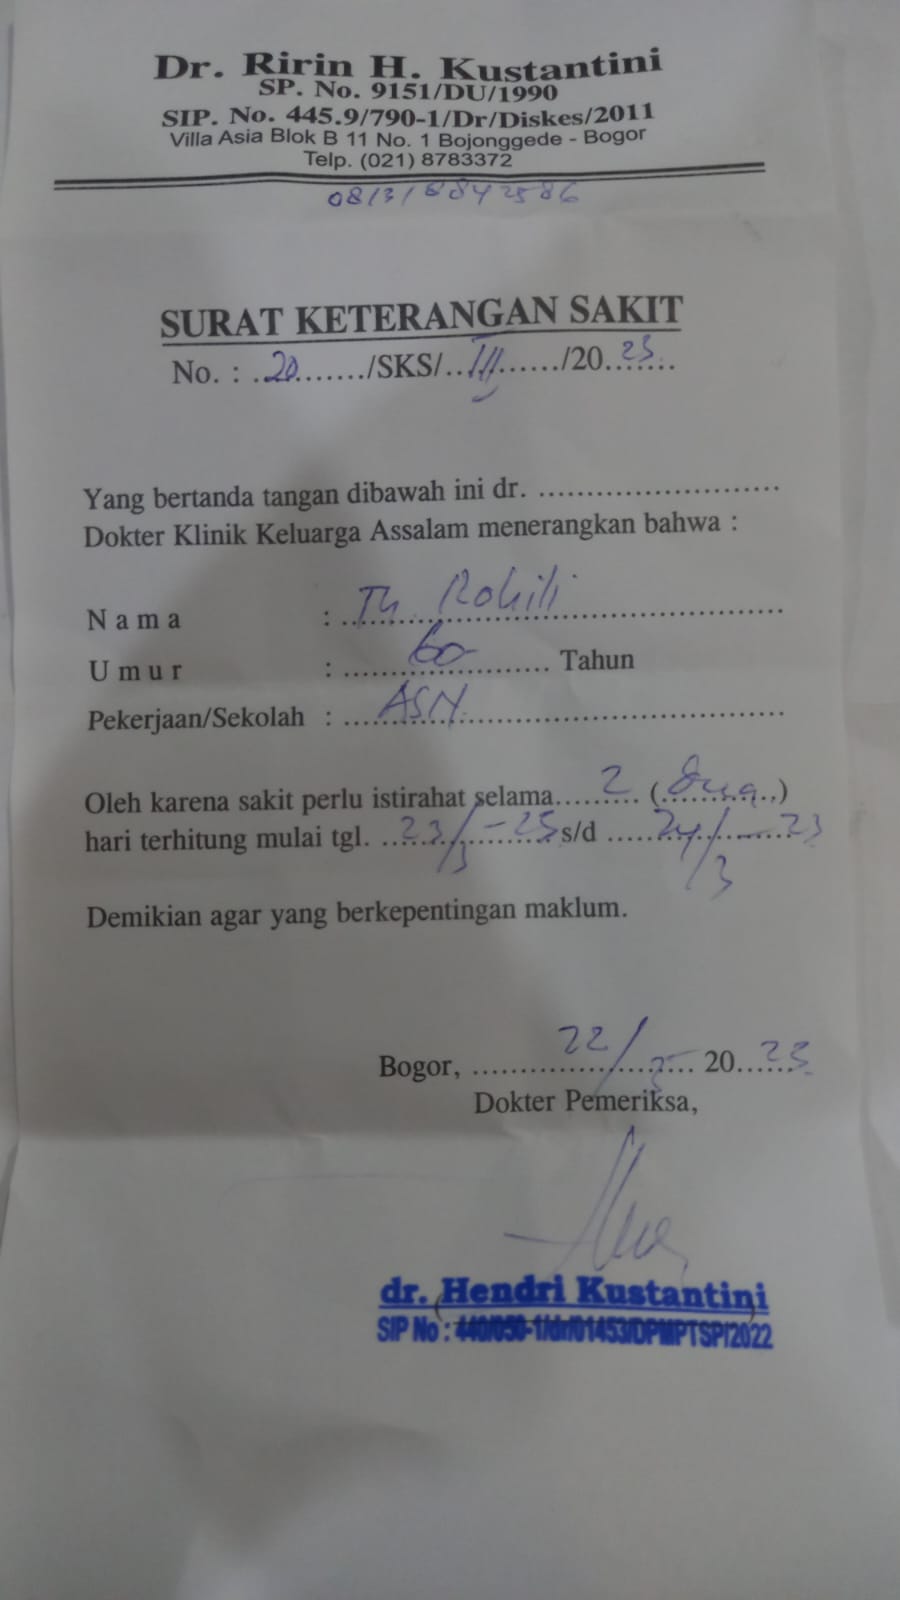 Dr. Ririn H. Kustantini
SP. No. 9151/DU/1990
SIP. No. 445.9/790-1/Dr/Diskes/2011
Villa Asia Blok B 11 No. 1 Bojonggede - Bogor
Telp. (021) 8783372
SURAT KETERANGAN SAKIT
No. : ..20......./SKS/..III....../20..23.....
Yang bertanda tangan dibawah ini dr. ..........................
Dokter Klinik Keluarga Assalam menerangkan bahwa :
Nama : Rohili
Umur : 60 Tahun
Pekerjaan/Sekolah : ASN
Oleh karena sakit perlu istirahat selama 2 (Dua)
hari terhitung mulai tgl. 23/3 - 23 s/d 24/3 - 23
Demikian agar yang berkepentingan maklum.
Bogor, 22/ 2023
Dokter Pemeriksa,
dr. Hendri Kustantini
SIP No : 440/050-1/dr/01453/DPMPTSP/2022